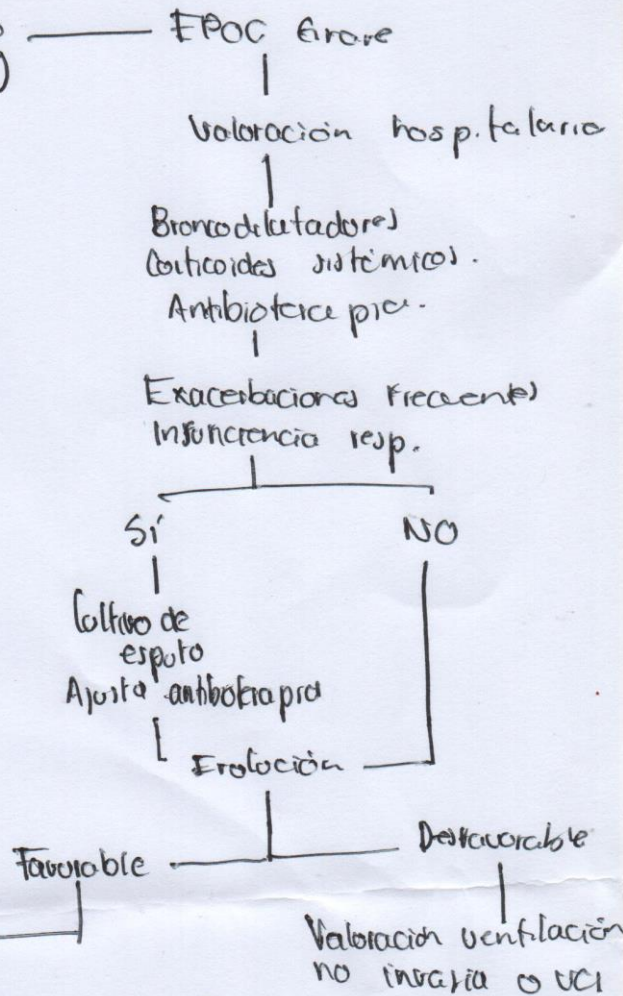 EPOC Grave
Valoración hospitalaria
Broncodilatadores
Corticoides sistémicos.
Antibioterapia.
Exacerbaciones frecuentes
Insuficiencia resp.
Sí
NO
Cultivo de
esputo
Ajusta antibioterapia
Evolución
Favorable
Desfavorable
Valoración ventilación
no invasia o UCI